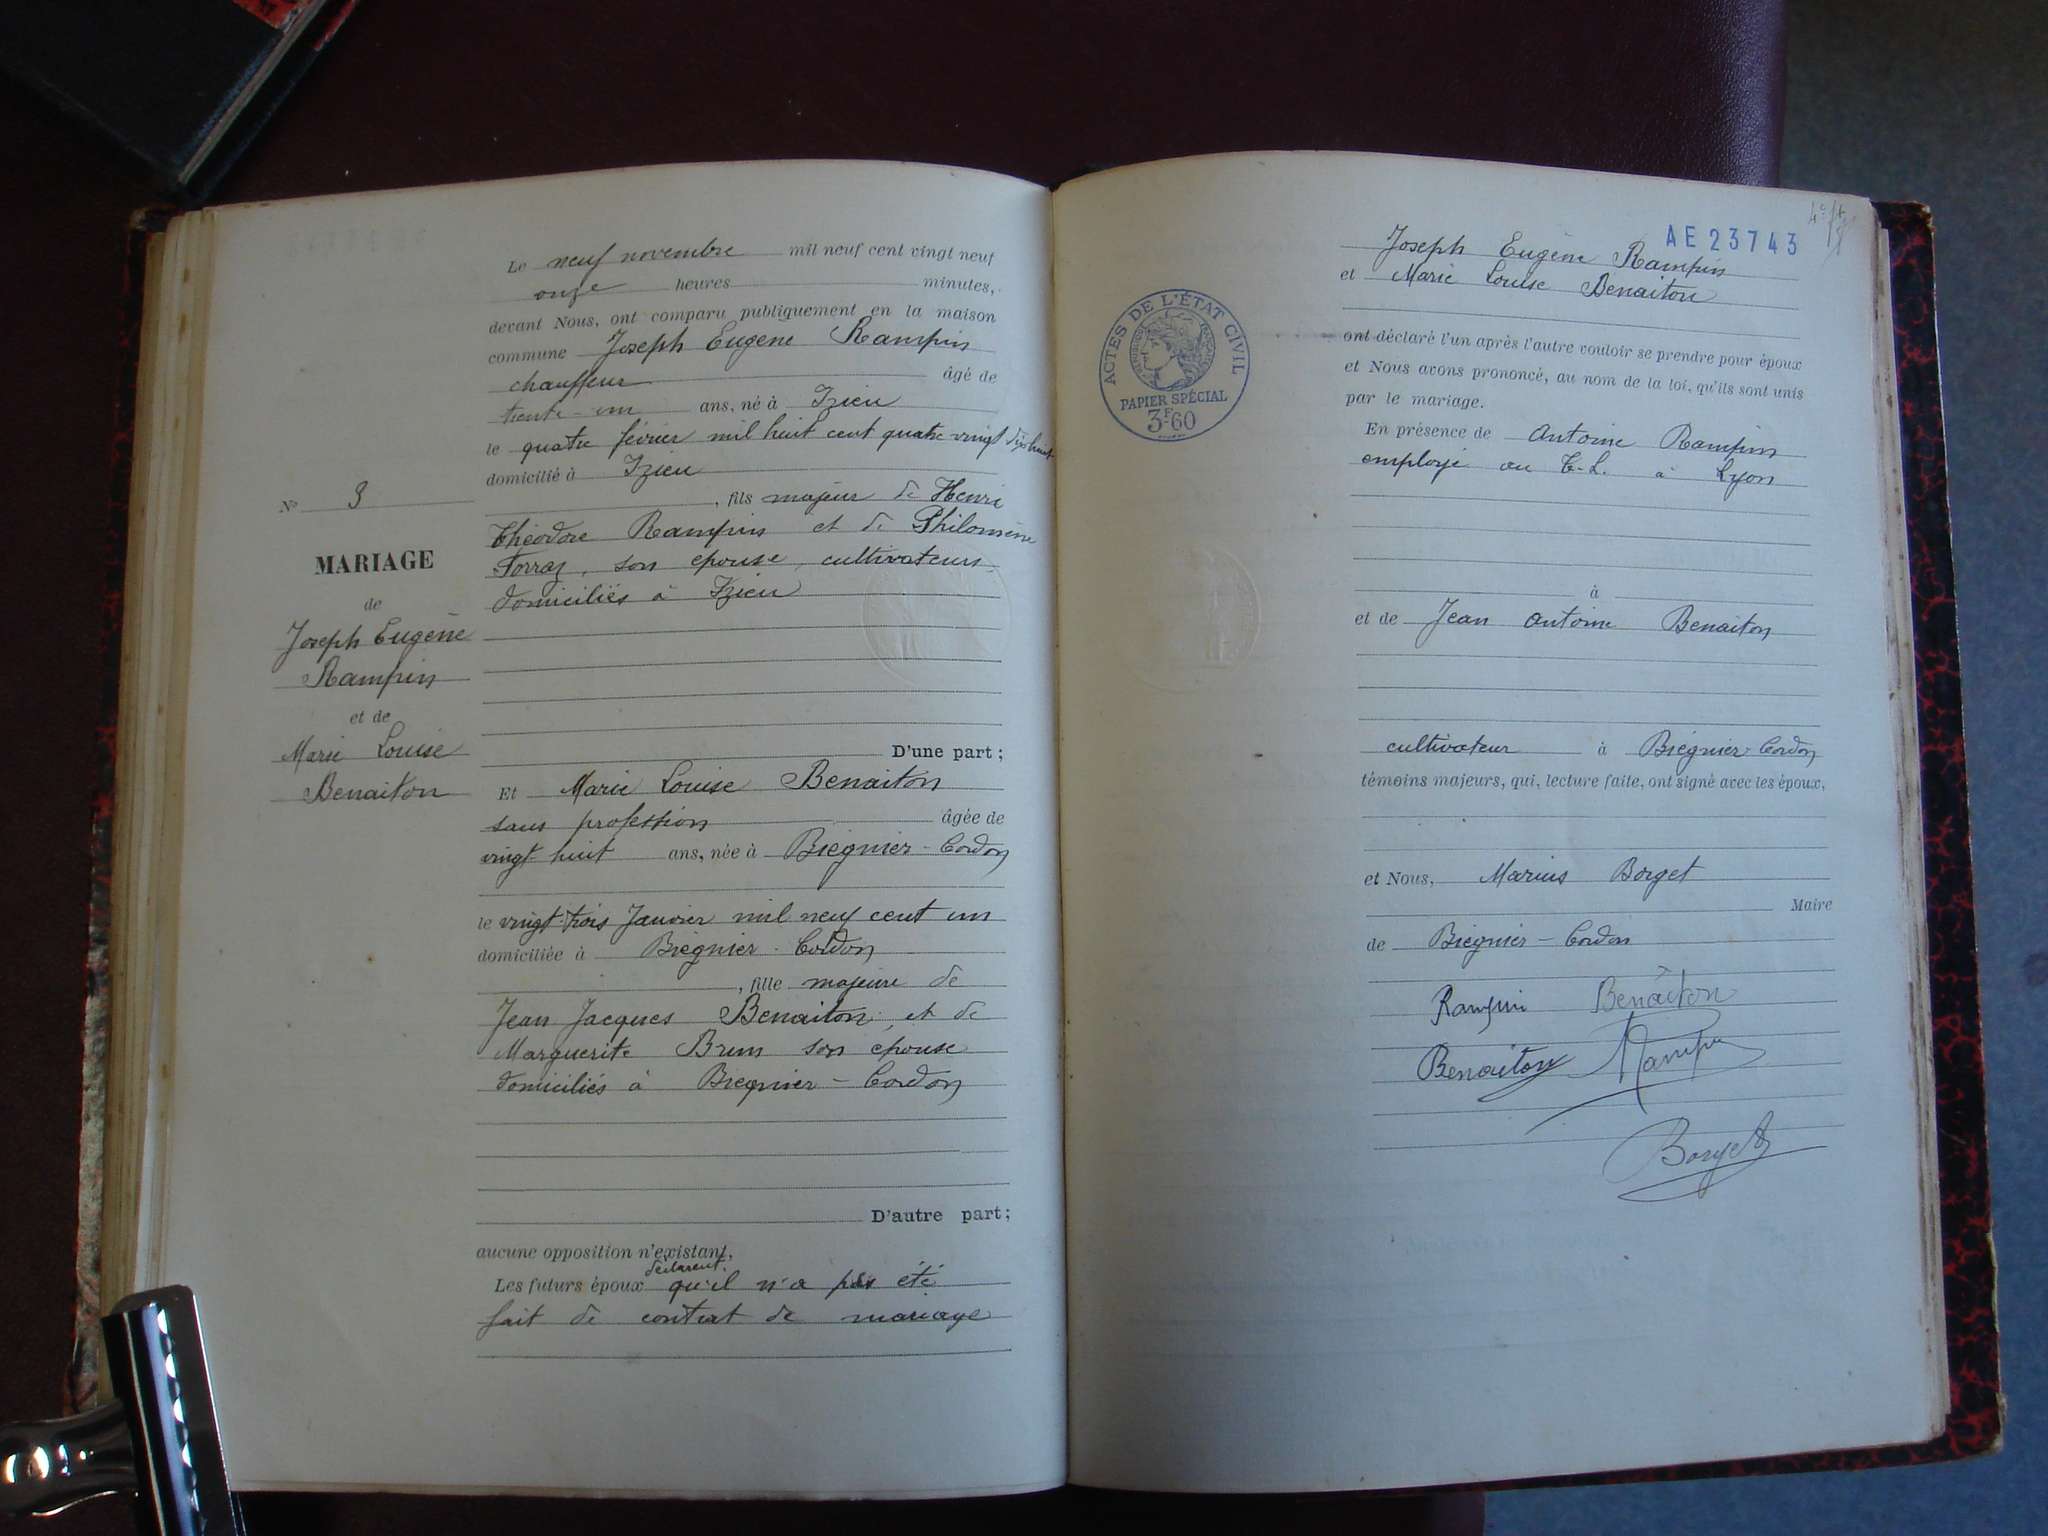 Le neuf novembre mil neuf cent vingt neuf
onze heures minutes,
devant Nous, ont comparu publiquement en la maison
commune Joseph Eugène Rampin
chauffeur âgé de
trente-un ans, né à Izieu
le quatre février mil huit cent quatre vingt dix huit
domicilié à Izieu
, fils majeur de Henri
Théodore Rampin et de Philomène
Forraz, son épouse, cultivateurs
domiciliés à Izieu
D'une part ;
Nº 3
MARIAGE
de
Joseph Eugène
Rampin
et de
Marie Louise
Benaiton
Et Marie Louise Benaiton
sans profession âgée de
vingt-huit ans, née à Brégnier-Cordon
le vingt-trois Janvier mil neuf cent un
domiciliée à Brégnier-Cordon
, fille majeure de
Jean Jacques Benaiton, et de
Marguerite Brun son épouse
domiciliés à Brégnier-Cordon
D'autre part ;
aucune opposition n'existant,
déclarent
Les futurs époux qu'il n'a pas été
fait de contrat de mariage
AE 23743
Joseph Eugène Rampin
et Marie Louise Benaiton
ACTES DE L'ÉTAT CIVIL
PAPIER SPÉCIAL
3F60
ont déclaré l'un après l'autre vouloir se prendre pour époux
et Nous avons prononcé, au nom de la loi, qu'ils sont unis
par le mariage.
En présence de Antoine Rampin
employé au T-L. à Lyon
à
et de Jean Antoine Benaiton
cultivateur à Brégnier-Cordon
témoins majeurs, qui, lecture faite, ont signé avec les époux,
et Nous, Marius Borget
Maire
de Brégnier-Cordon
Rampin Benaiton
Benaiton Rampin
Borget